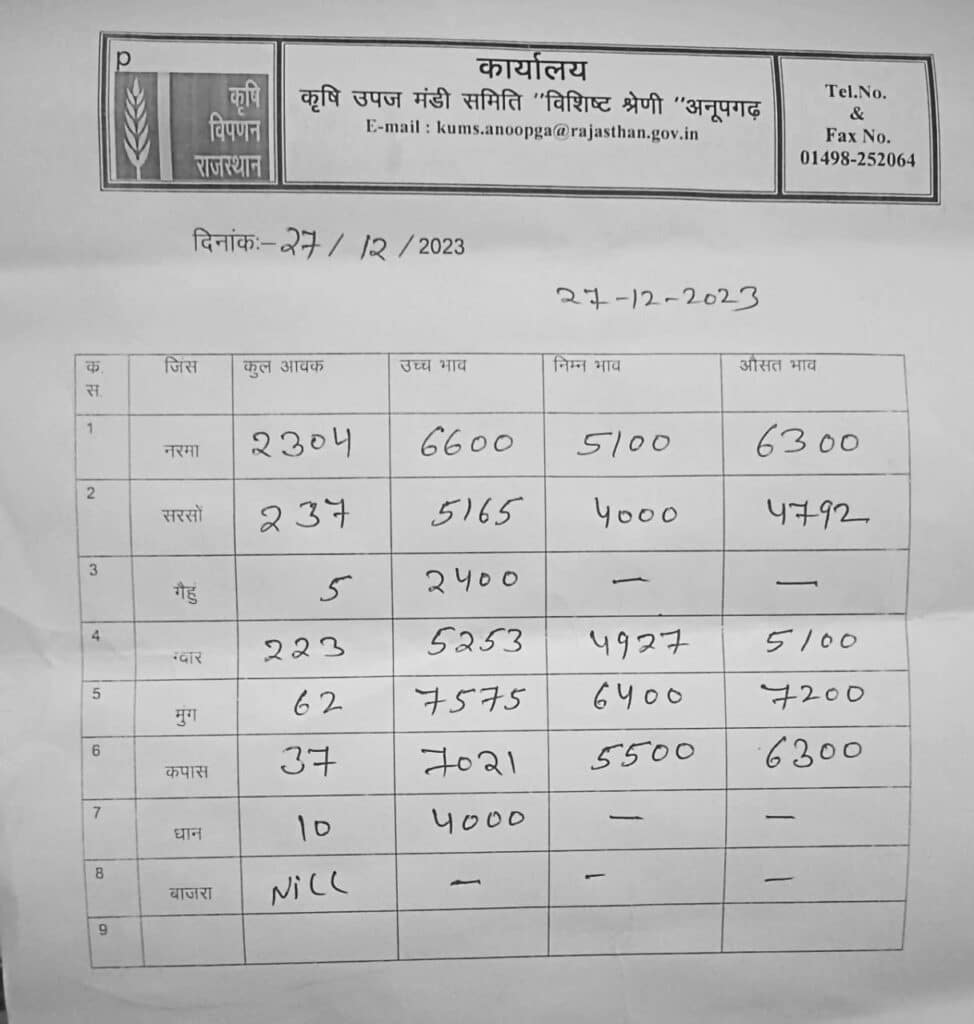 p
कृषि
विपणन
राजस्थान
कार्यालय
कृषि उपज मंडी समिति "विशिष्ट श्रेणी "अनूपगढ़
E-mail : kums.anoopga@rajasthan.gov.in
Tel.No.
&
Fax No.
01498-252064
दिनांकः- 27 / 12 / 2023
27-12-2023
क. स. जिंस कुल आवक उच्च भाव निम्न भाव औसत भाव
1 नरमा 2304 6600 5100 6300
2 सरसों 237 5165 4000 4792
3 गैहुं 5 2400 — —
4 ग्वार 223 5253 4927 5100
5 मुंग 62 7575 6400 7200
6 कपास 37 7021 5500 6300
7 धान 10 4000 — —
8 बाजरा NiLL — — —
9